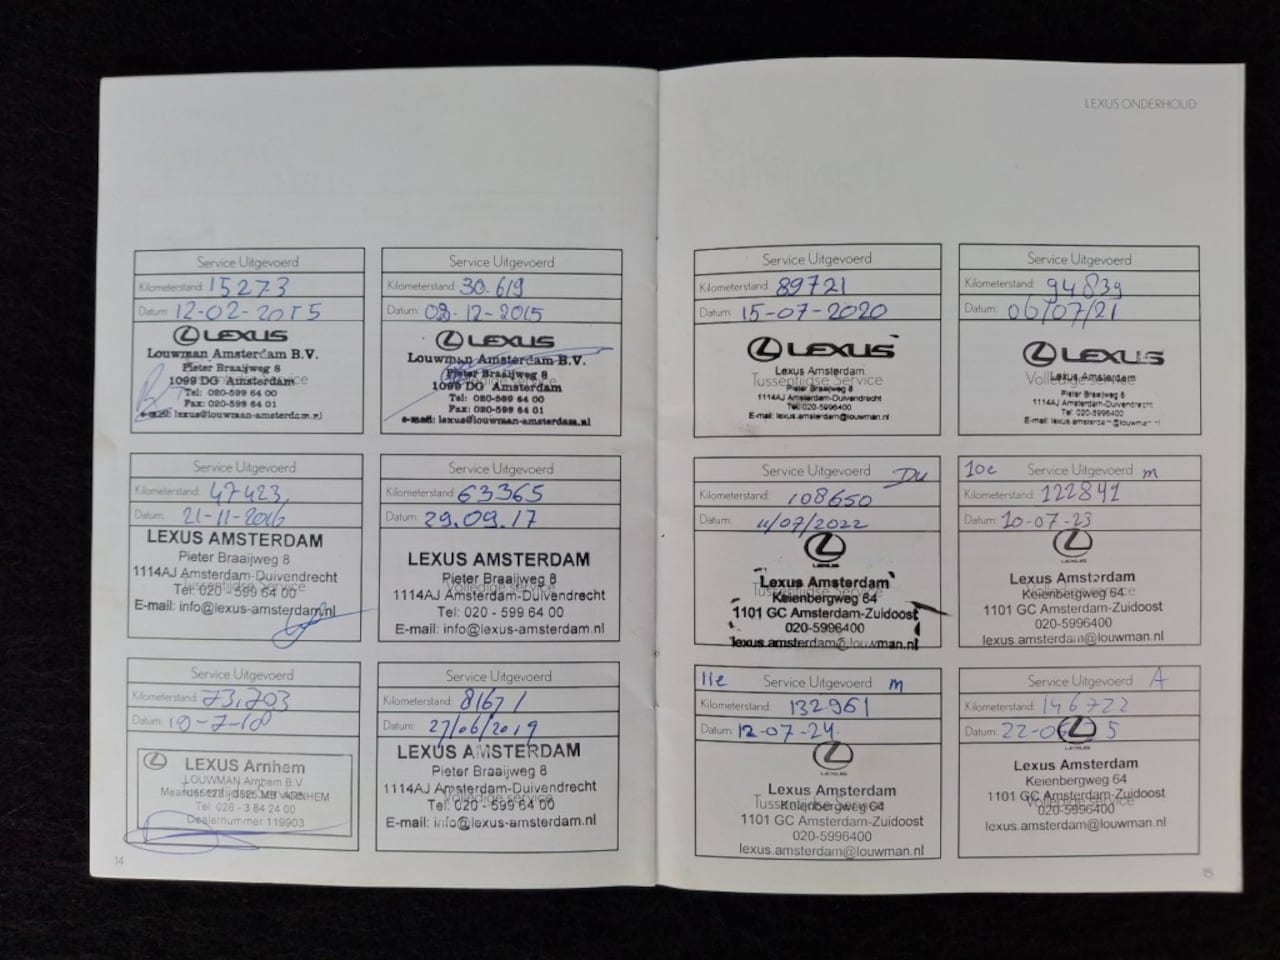 LEXUS ONDERHOUD
Service Uitgevoerd
Kilometerstand: 15273
Datum: 12-02-2015
LEXUS
Louwman Amsterdam B.V.
Pieter Braaijweg 8
1099 DG Amsterdam
Tel: 020-599 64 00
Fax: 020-599 64 01
e-mail: lexus@louwman-amsterdam.nl
Service Uitgevoerd
Kilometerstand: 30.619
Datum: 08-12-2015
LEXUS
Louwman Amsterdam B.V.
Pieter Braaijweg 8
Volledige Service
1099 DG Amsterdam
Tel: 020-599 64 00
Fax: 020-599 64 01
e-mail: lexus@louwman-amsterdam.nl
Service Uitgevoerd
Kilometerstand: 47423
Datum: 21-11-2016
LEXUS AMSTERDAM
Pieter Braaijweg 8
1114AJ Amsterdam-Duivendrecht
Tussentijdse Service
Tel: 020 - 599 64 00
E-mail: info@lexus-amsterdam.nl
Service Uitgevoerd
Kilometerstand: 63365
Datum: 29.09.17
LEXUS AMSTERDAM
Pieter Braaijweg 8
Volledige Service
1114AJ Amsterdam-Duivendrecht
Tel: 020 - 599 64 00
E-mail: info@lexus-amsterdam.nl
Service Uitgevoerd
Kilometerstand: 73.703
Datum: 10-7-18
LEXUS Arnhem
LOUWMAN Arnhem B.V.
Tel 026 - 3 84 24 00
Dealernummer 119903
Service Uitgevoerd
Kilometerstand: 81671
Datum: 27/06/2019
LEXUS AMSTERDAM
Pieter Braaijweg 8
1114AJ Amsterdam-Duivendrecht
Volledige Service
Tel: 020 - 599 64 00
E-mail: info@lexus-amsterdam.nl
14
Service Uitgevoerd
Kilometerstand: 89721
Datum: 15-07-2020
LEXUS
Lexus Amsterdam
Tussentijdse Service
Pieter Braaijweg 8
1114AJ Amsterdam-Duivendrecht
Tel: 020-5996400
E-mail: lexus.amsterdam@louwman.nl
Service Uitgevoerd
Kilometerstand: 94839
Datum: 06/07/21
LEXUS
Lexus Amsterdam
Volledige Service
Pieter Braaijweg 8
1114AJ Amsterdam-Duivendrecht
Tel: 020-5996400
E-mail: lexus.amsterdam@louwman.nl
Service Uitgevoerd
Kilometerstand: 108650
Datum: 11/07/2022
LEXUS
Lexus Amsterdam
Tussentijdse Service
Keienbergweg 64
1101 GC Amsterdam-Zuidoost
020-5996400
lexus.amsterdam@louwman.nl
10e Service Uitgevoerd m
Kilometerstand: 122841
Datum: 10-07-23
LEXUS
Lexus Amsterdam
Volledige Service
Keienbergweg 64
1101 GC Amsterdam-Zuidoost
020-5996400
lexus.amsterdam@louwman.nl
11e Service Uitgevoerd m
Kilometerstand: 132961
Datum: 12-07-24
LEXUS
Lexus Amsterdam
Tussentijdse Service
Keienbergweg 64
1101 GC Amsterdam-Zuidoost
020-5996400
lexus.amsterdam@louwman.nl
Service Uitgevoerd A
Kilometerstand: 146722
Datum: 22-0 5
LEXUS
Lexus Amsterdam
Keienbergweg 64
1101 GC Amsterdam-Zuidoost
Volledige Service
020-5996400
lexus.amsterdam@louwman.nl
15